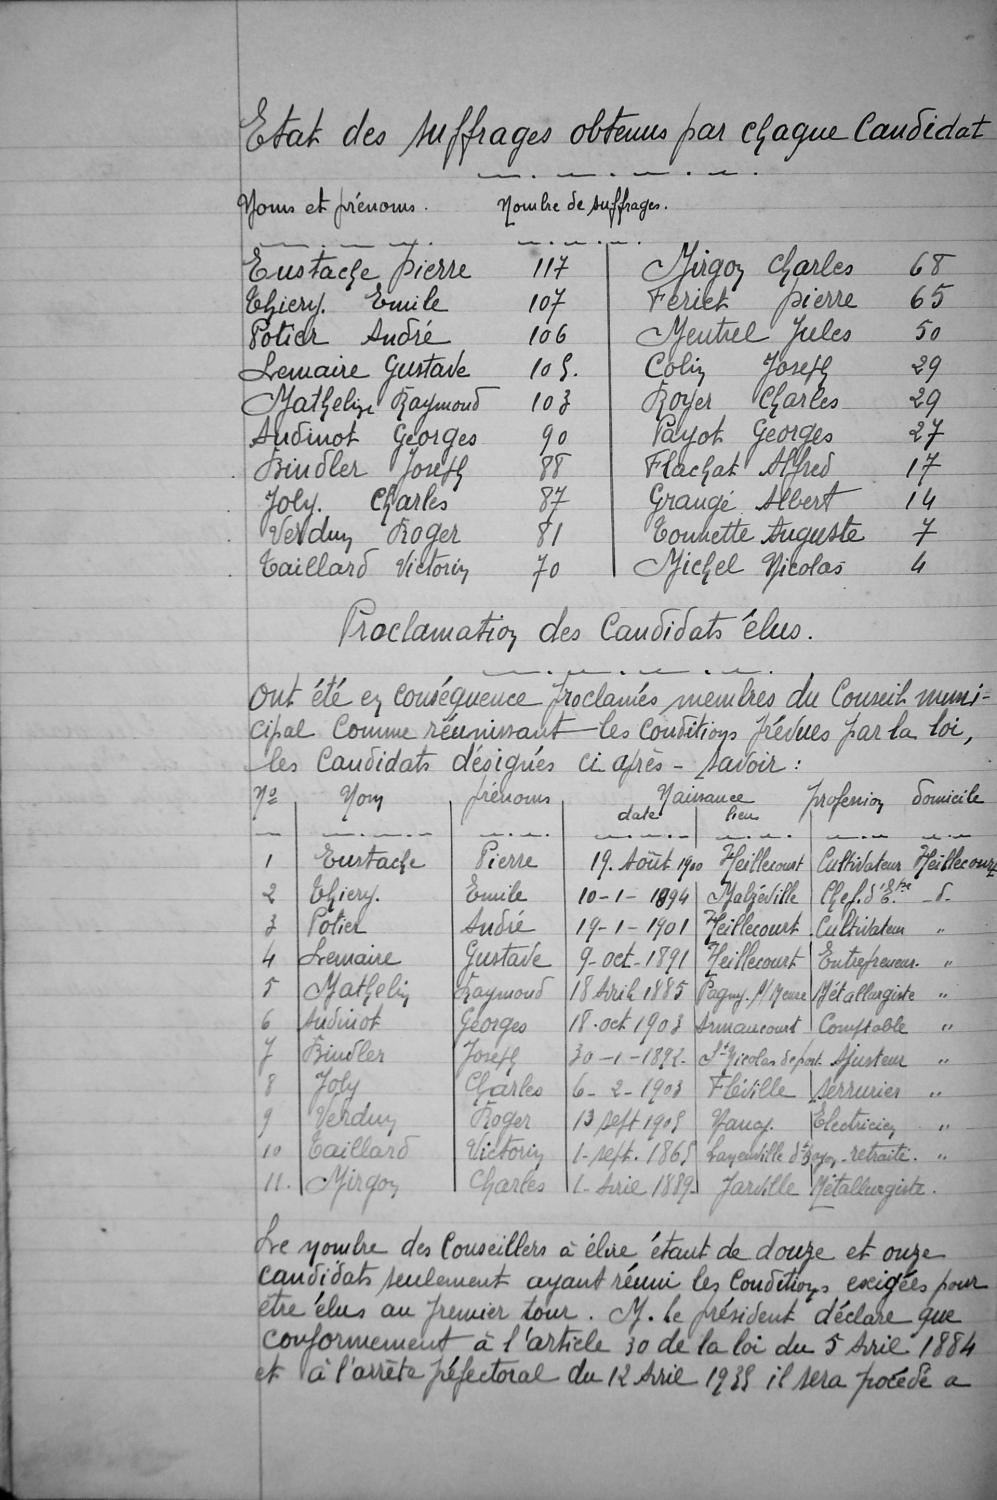 Etat des suffrages obtenus par chaque Candidat
Noms et prénoms. Nombre de suffrages.
Eustache Pierre 117 Mirgon Charles 68
Thiery. Emile 107 Feriet Pierre 65
Potier André 106 Mentrel Jules 50
Lemaire Gustave 105. Colin Joseph 29
Mathelin Raymond 103 Royer Charles 29
Audinot Georges 90 Payot Georges 27
Bindler Joseph 88 Flachat Alfred 17
Joly. Charles 87 Grangé Albert 14
Verdun Roger 81 Tonnette Auguste 7
Taillard Victorin 70 Michel Nicolas 4
Proclamation des Candidats élus.
Ont été en conséquence proclamés membres du Conseil muni-
cipal comme réunissant les conditions prévues par la loi,
les candidats désignés ci après - savoir :
No Nom prénoms Naissance profession domicile
date lieu
1 Eustache Pierre 19. Août 1900 Heillecourt Cultivateur Heillecourt
2 Thiery. Emile 10-1-1894 Malzéville Chef. d'Etse -d-
3 Potier André 19-1-1901 Heillecourt Cultivateur "
4 Lemaire Gustave 9-oct-1891 Heillecourt Entrepreneur. "
5 Mathelin Raymond 18 Avril 1885 Pagny. s/Meuse Métallurgiste "
6 Audinot Georges 18.oct 1903 Armaucourt Comptable "
7 Bindler Joseph 30-1-1892. St Nicolas de port Ajusteur "
8 Joly Charles 6-2-1903 Fléville serrurier "
9 Verdun Roger 13 sept 1905 Nancy. Electricien "
10 Taillard Victorin 1-sept. 1865 retraité. "
11. Mirgon Charles 1-Avril 1889. Jarville Métallurgiste.
Le nombre des Conseillers à élire étant de douze et onze
candidats seulement ayant réuni les conditions exigées pour
être élus au premier tour. M. le président déclare que
conformement à l'article 30 de la loi du 5 Avril 1884
et à l'arrête péfectoral du 12 Avril 1935 il sera procédé a